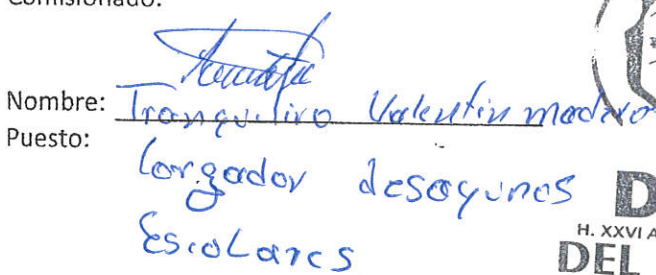 Comisionado:
Nombre: Tranquilino Valentin madero
Puesto:
Cargador desayunos
Escolares
D
H. XXVI A
DEL